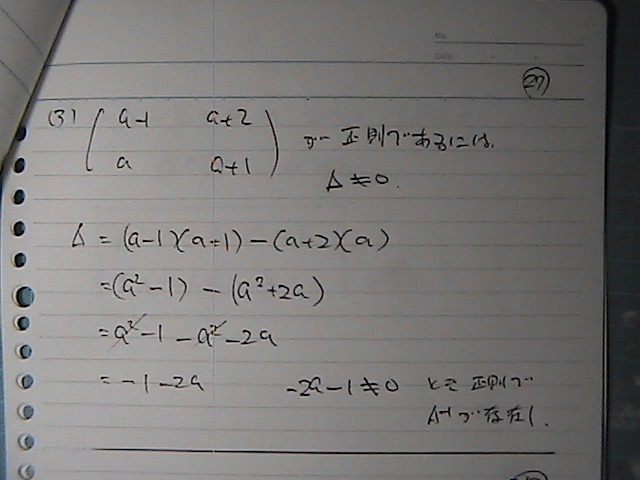 No.
DATE
27
(3) ( a-1 a+2 が 正則であるには、
a a+1 )
Δ≠0.
Δ = (a-1)(a+1) - (a+2)(a)
= (a²-1) - (a²+2a)
= a²-1-a²-2a
= -1-2a -2a-1≠0 とき 正則で
A⁻¹が存在し.